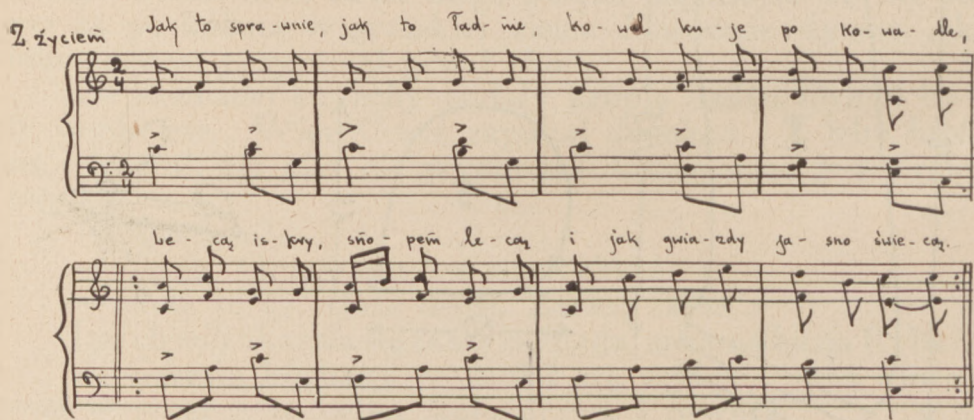 Z życiem
Jak to spra-wnie, jak to ład-nie, ko-wal ku-je po ko-wa-dle,
Le-cą is-kry, sno-pem le-cą i jak gwia-zdy ja-sno świe-cą.